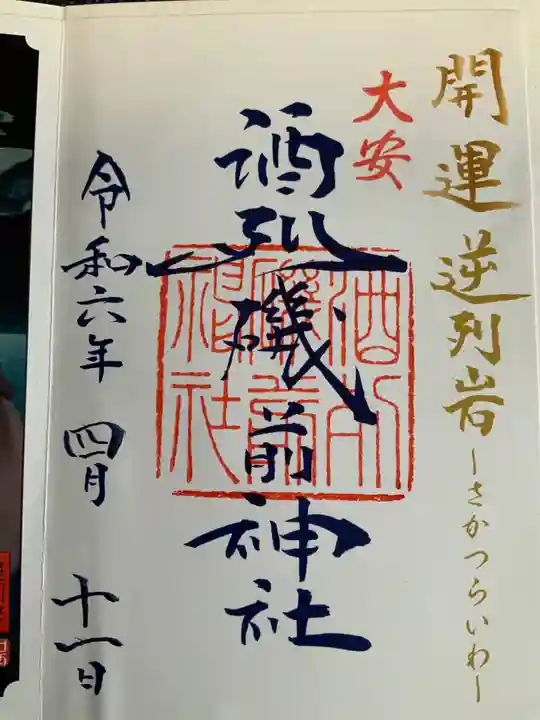 開運逆列岩 〜さかつらいわ〜
大安
酒列磯前神社
酒列磯前神社
令和六年 四月 十一日